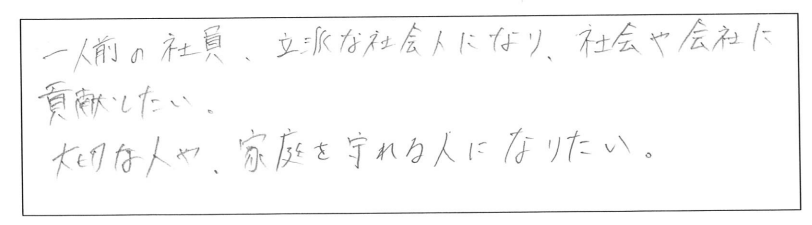 一人前の社員、立派な社会人になり、社会や会社に
貢献したい。
大切な人や、家庭を守れる人になりたい。